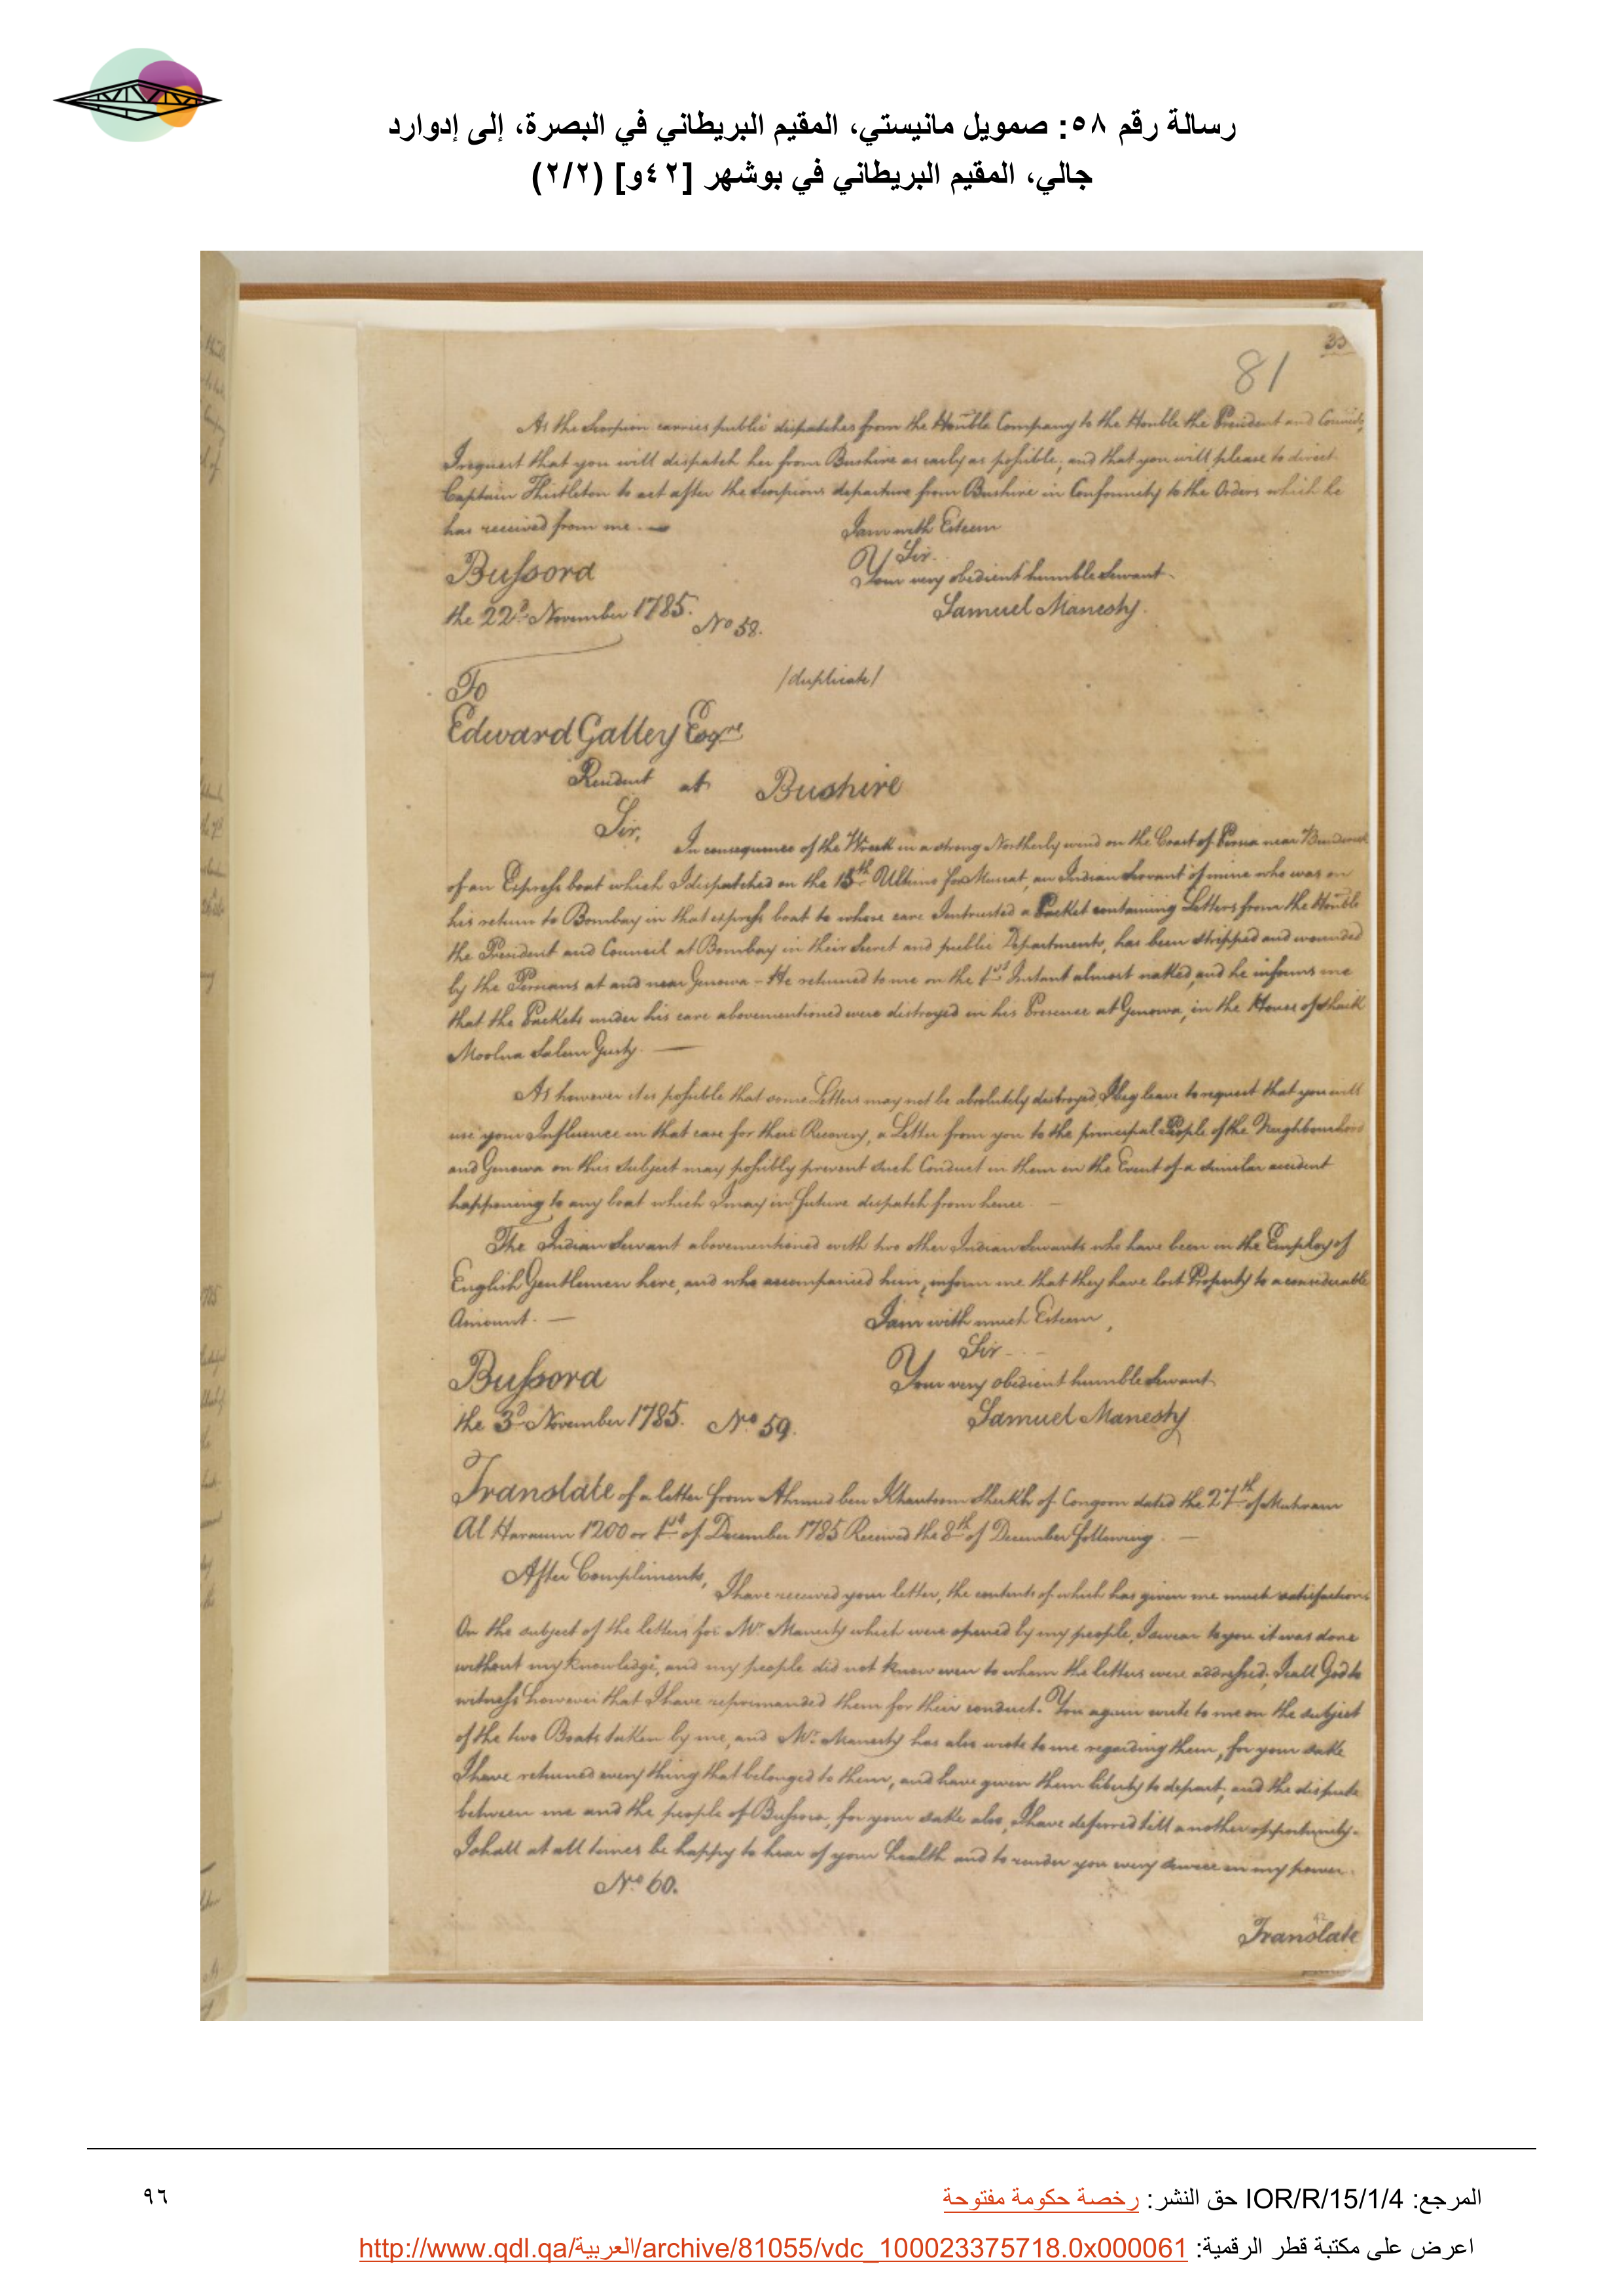 رسالة رقم ٥٨: صمويل مانيستي، المقيم البريطاني في البصرة، إلى إدوارد
جالي، المقيم البريطاني في بوشهر [٤٢و] (٢/٢)
35
81
As the Scorpion carries public dispatches from the Honble Company to the Honble the President and Council,
I request that you will dispatch her from Bushire as early as possible, and that you will please to direct
Captain Thistleton to act after the Scorpions departure from Bushire in Conformity to the Orders which he
has received from me. I am with Esteem
Sir.
Bussora Your very obedient humble Servant.
the 22d November 1785. Samuel Manesty.
No 58.
/duplicate/
To
Edward Galley Esqre
Resident at Bushire
Sir,
In consequence of the Wreck in a strong Northerly wind on the Coast of Persia near
of an Express boat which I dispatched on the 15th Ultimo for Muscat, an Indian Servant of mine who was on
his return to Bombay in that express boat to whose care I entrusted a Packet containing Letters from the Honble
the President and Council at Bombay in their Secret and public Departments, has been stripped and wounded
by the Persians at and near Genowa - He returned to me on the 1st Instant almost naked, and he informs me
that the Packets under his care abovementioned were distroyed in his Presence at Genowa, in the House of Shaik
Moolna Salem
As however it is possible that some Letters may not be absolutely destroyed, I beg leave to request that you will
use your Influence in that case for their Recovery, a Letter from you to the principal People of the Neighbourhood
and Genowa on this Subject may possibly prevent such Conduct in them in the Event of a similar accident
happening to any boat which I may in future dispatch from hence.
The Indian Servant abovementioned with two other Indian Servants who have been in the Employ of
English Gentlemen here, and who accompanied him, inform me that they have lost Property to a considerable
Amount. I am with much Esteem,
Sir
Bussora Your very obedient humble Servant.
the 3d November 1785. No 59. Samuel Manesty
Translate of a letter from Ahmed ben Sheikh of Congoon dated the 27th of Muhram
Al Haraum 1200 or 1st of December 1785 Received the 8th of December following.
After Compliments,
I have received your letter, the contents of which has given me much satisfaction
On the subject of the letters for Mr. Manesty which were opened by my people, I swear to you it was done
without my knowledge, and my people did not know even to whom the letters were addressed; I call God to
witness however that I have reprimanded them for their conduct. You again write to me on the subject
of the two Boats taken by me, and Mr. Manesty has also wrote to me regarding them, for your sake
I have returned every thing that belonged to them, and have given them liberty to depart; and the dispute
between me and the people of Bussora, for your sake also, I have deferred till another opportunity.
I shall at all times be happy to hear of your health and to render you every service in my power.
No 60.
42
Translate
المرجع: IOR/R/15/1/4 حق النشر: رخصة حكومة مفتوحة
٩٦
اعرض على مكتبة قطر الرقمية: http://www.qdl.qa/العربية/archive/81055/vdc_100023375718.0x000061